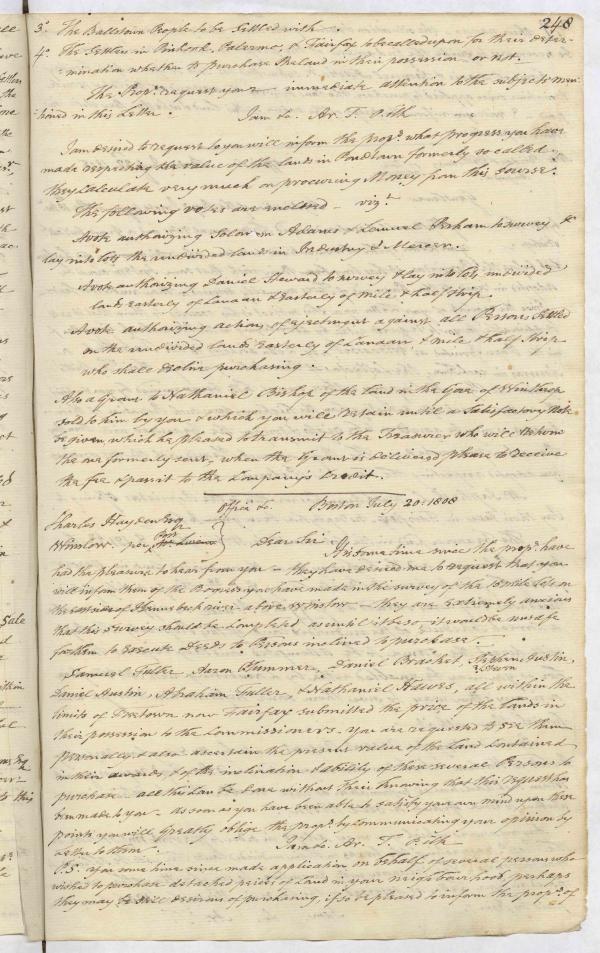 248
3d. The Ballstown People to be Settled with.
4th. The Settlers in Pinhook, Palermo, & Fairfax to be called upon for their deter-
mination whether to purchase the land in their possession or not.
The Proprs. request your immediate attention to the subjects men-
tioned in this Letter. I am &c. Ar. T. Pitk
I am desired to request you will inform the propr. what progress you have
made respecting the value of the lands in formerly so called.
they calculate very much on procuring Money from this source.
The following votes are enclosed - vizt.
A vote authorizing Solomon Adams & Lemuel Perham to survey &
lay into lots the undivided lands in Industry & Mercer.
A vote authorizing Daniel Steward to survey & lay into lots undivided
lands Easterly of Canaan & Easterly of Mile & half Strip.
A vote authorizing actions of ejectment against all Persons Settled
on the undivided lands Easterly of Canaan & mile & half Strip
who shall decline purchasing.
Also a Grant to Nathaniel Bishop of the land in the Gore of Winthrop
sold to him by you & which you will retain until a Satisfactory Note
be given which be pleased to transmit to the Treasurer who will return
the one formerly sent, when the Grant is delivered please to receive
the fee & pass it to the Company's Credit.
Office &c. Boston July 20. 1808
Charles Hayden Esq
Winslow. per Post
Dear Sir
It is some time since the propr. have
had the pleasure to hear from you - they have desired me to request that you
will inform them of the Progress you have made in the survey of the 15 mile lots on
the east side of Kennebeck river above Winslow - they are extremely anxious
that this survey should be completed as until it be so, it would be unsafe
for them to execute Deeds to Persons inclined to purchase.
Samuel Fuller, Aaron Plummer, Daniel Bracket, Stephen Austin,
Daniel Austin, Abraham Fuller, & Nathaniel Hawes, all within the
limits of Freetown now Fairfax submitted the price of the lands in
their possession to the Commissioners. You are requested to see them
personally & also ascertain the present value of the Land contained
in their awards, & of the inclination & ability of these several Persons to
purchase - all this can be done without their knowing that this request has
been made to you - as soon as you have been able to satisfy your own mind upon these
points you will greatly oblige the propr. by communicating your opinion by
Letter to them. I am &c. Ar. T. Pitk
P.S. you some time since made application on behalf of several persons who
wished to purchase detached peices of land in your neighbourhood, perhaps
they may be still desirous of purchasing, if so be pleased to inform the propr. of